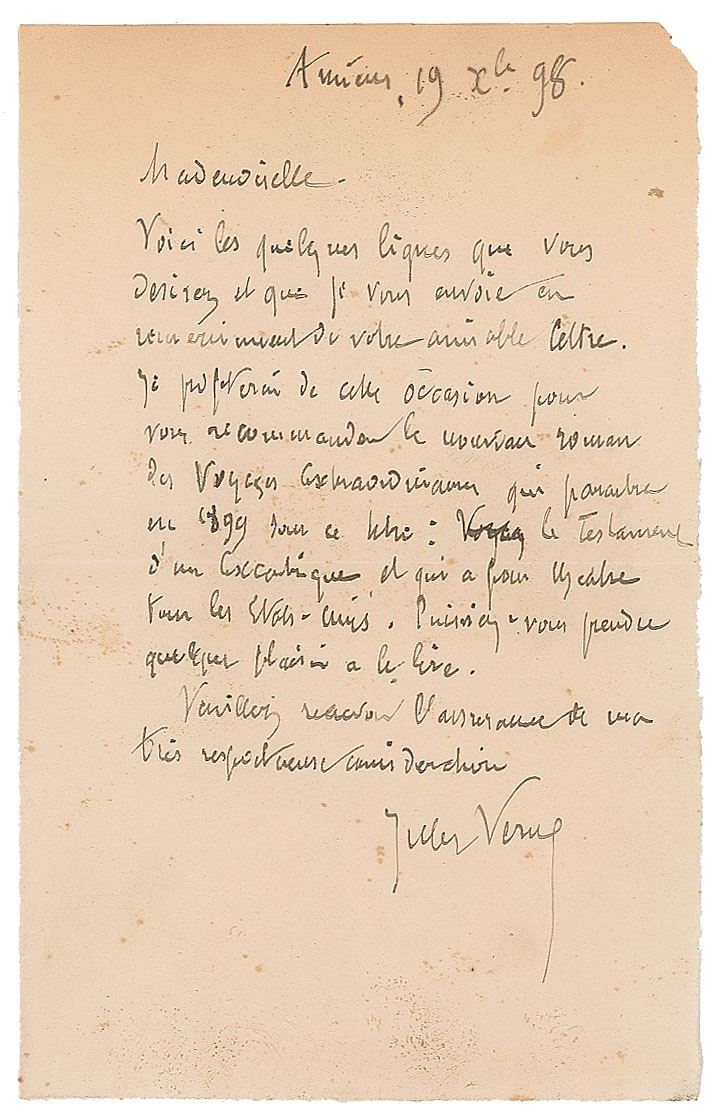 Amiens, 19 Xbre 98.
Mademoiselle.
Voici les quelques lignes que vous
désirez et que je vous envoie en
remerciement de votre aimable lettre.
Je profiterai de cette occasion pour
vous recommander le nouveau roman
des Voyages Extraordinaires qui paraîtra
en 1899 sous ce titre : le Testament
d'un Excentrique et qui a pour théâtre
tous les Etats-Unis. Puissiez-vous prendre
quelque plaisir a le lire.
Veuillez recevoir l'assurance de ma
très respectueuse considération
Jules Verne